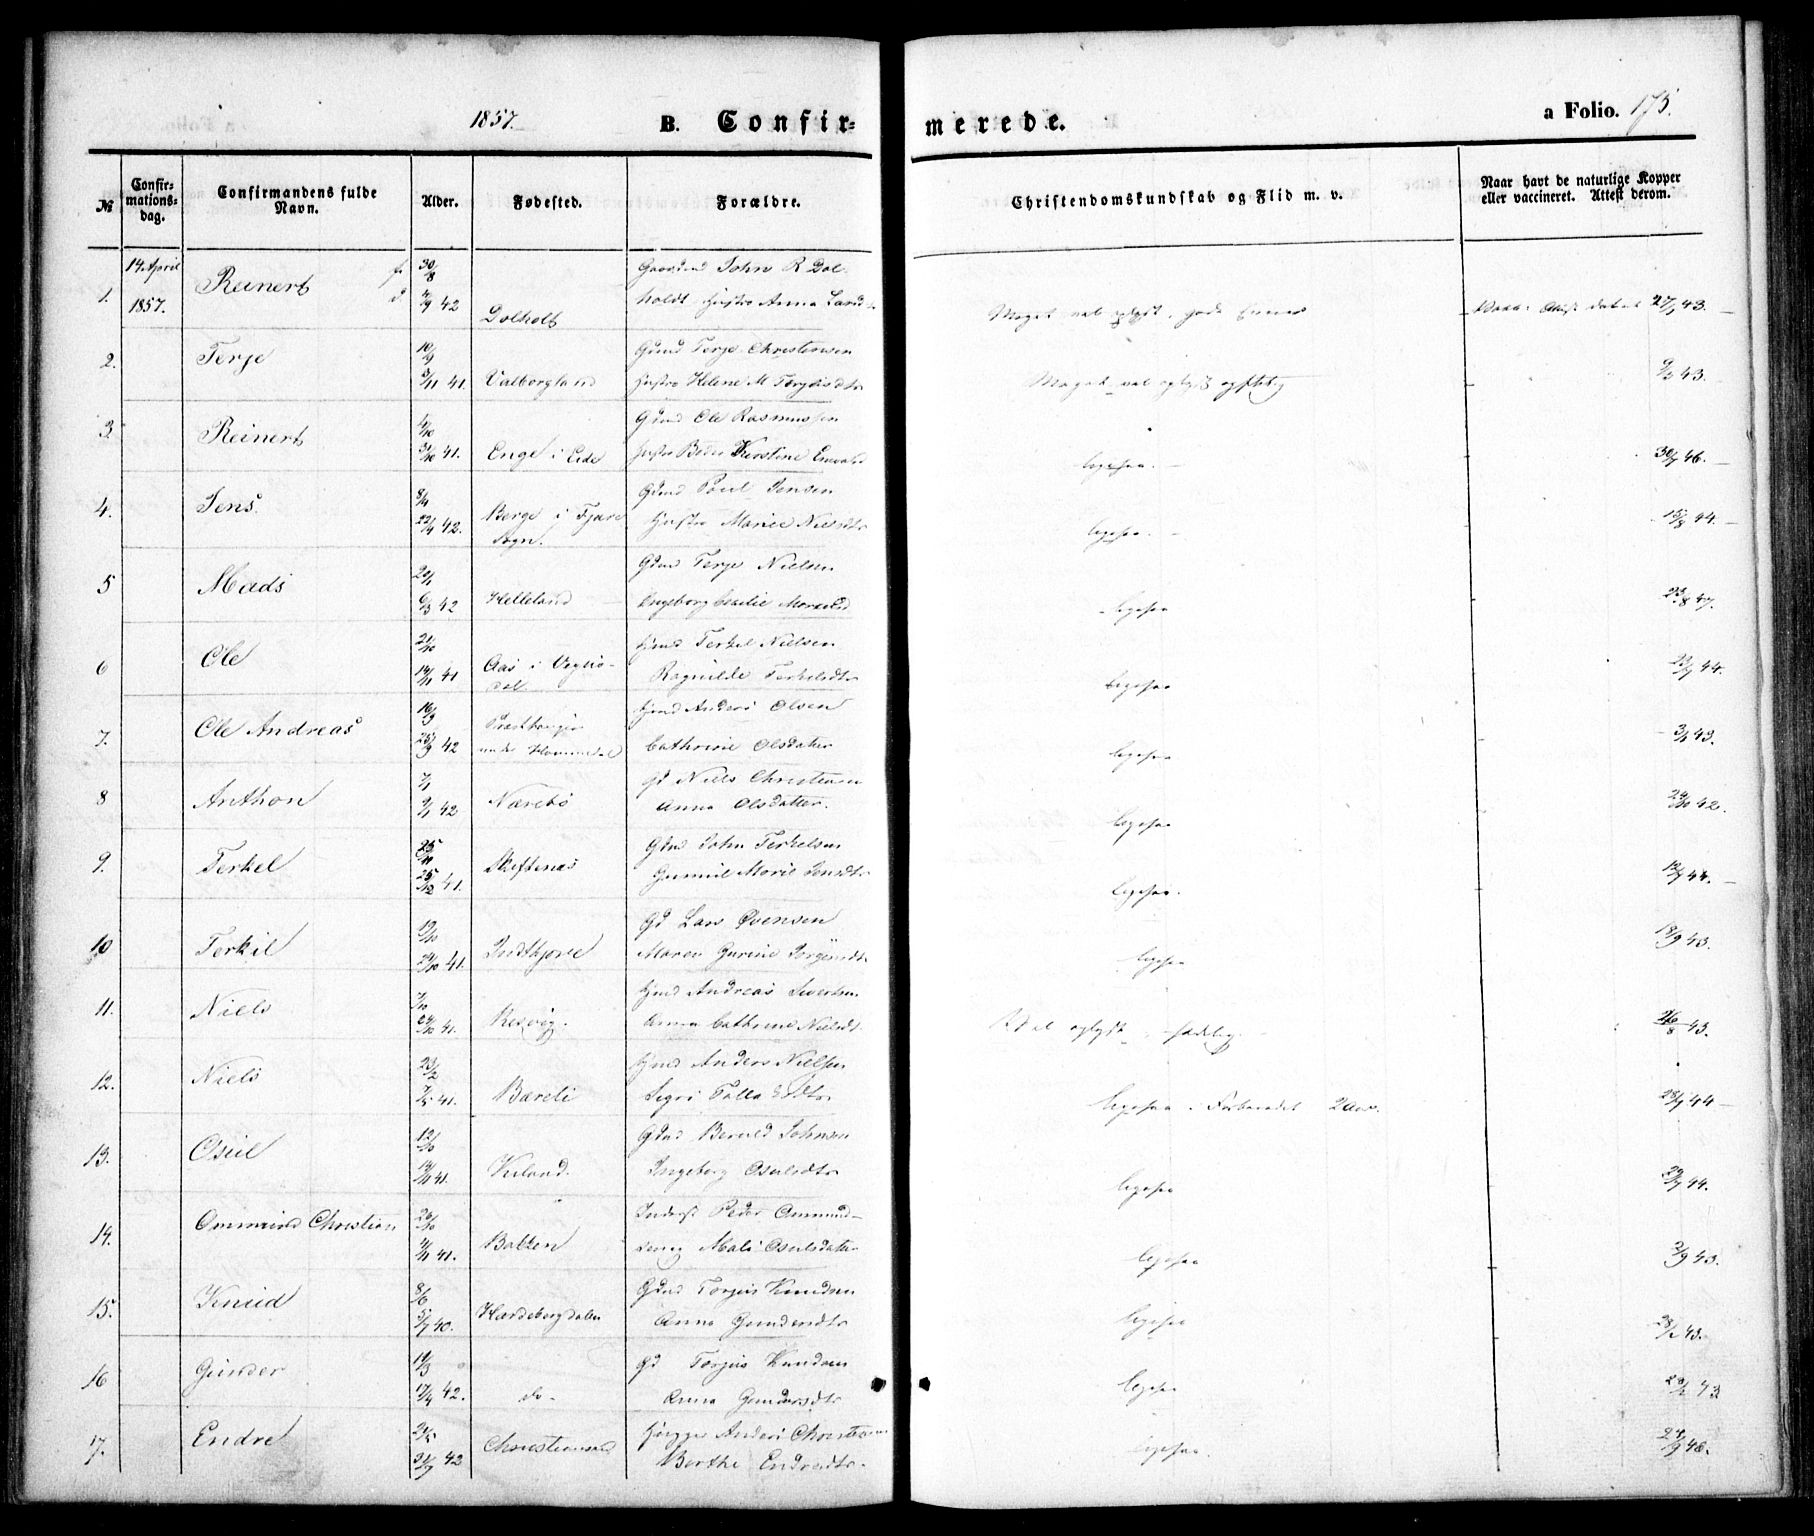 1857.
B. Confir-
merede.
a Folio. 175.
№
Confir-
mations-
dag.
Confirmandens fulde
Navn.
Alder.
Fødested.
Forældre.
Christendomskundskab og Flid m. v.
Naar havt de naturlige Kopper
eller vaccineret. Attest derom.
1. 14 April 1857. Reinert f. 30/8 d 4/9 42 Dolholt Gaardmd John R Dol-
holdt Hustro Anna Lars
Meget vel oplyst, gode Evner 27/7 43.
2. Terje 10/9 3/11 41. Valborgland Gmd Terje Christensen
Hustro Helene M Terjesdtr
Meget vel oplyst og flittig 9/7 43.
3. Reinert 4/10 31/10 41. Enge i Eide Gmd Ole Rasmussen
Hustro Kirstine
ligesaa. 30/7 46.
4. Jens 8/4 22/4 42. Berge i Fjære
Sogn. Gmd Poul Jensen
Hustro Maren Nielsdtr
ligesaa. 15/8 44.
5 Mads 20/1 6/3 42 Helleland Gmd Terje Nielsen
Ingeborg Cecilie
ligesaa 23/8 47.
6 Ole 21/10 14/11 41 Aas i Vegus-
dal Hmd Terkel Nielsen
Ragnilde Terkelsdtr
ligesaa 22/7 44.
7. Ole Andreas 16/9 25/9 42 under Hommedal Hmd Anders Olsen
Cathrine Olsdatter
ligesaa 3/7 43.
8 Anthon 7/1 9/1 42 Nærebø Gd Niels Christensen
Anna Olsdatter.
ligesaa 24/10 42.
9. Terkel 25/11 25/12 41. Skiftenes Gmd John Terkelsen
Gunnil Marie Jensdtr
ligesaa. 12/7 44.
10 Terkil 19/10 24/10 41. Indtjore Gd Lars Evensen
Maren Gurine Jørgensdtr
ligesaa 18/9 43.
11. Niels 7/10 24/10 41. Resvig. Hmd Andreas Sivertsen
Anna Cathrine Nielsdtr
Vel oplyst. sædelig. 26/8 43.
12. Niels 23/2 7/5 41. Bareli Hmd Anders Nielsen
Sigri Tallaksdtr
ligesaa. Forberedet 2 Aar. 28/7 44
13. Osul 12/10 14/11 41. Kiland. Gmd Beruld Johnsen
Ingeborg Osulsdtr
ligesaa 29/7 44.
14. Ommund Christian 26/10 4/11 41. Balzen Inderst Peder Ommund-
sen og Mali Osulsdatter
ligesaa 2/9 43.
15. Knud 8/6 5/7 40. Hardeberg dalen Gmd Torjus Knudsen
Anna Gundersdtr
ligesaa 28/2 43.
16 Gunder 19/3 17/4 42. do- Gd Torjus Knudsen
Anna Gundersdtr
ligesaa 28/2 43
17. Endre 24/5 21/9 42 Christiansand Anders Christensen
Berthe Endresdtr.
ligesaa. 24/9 48.